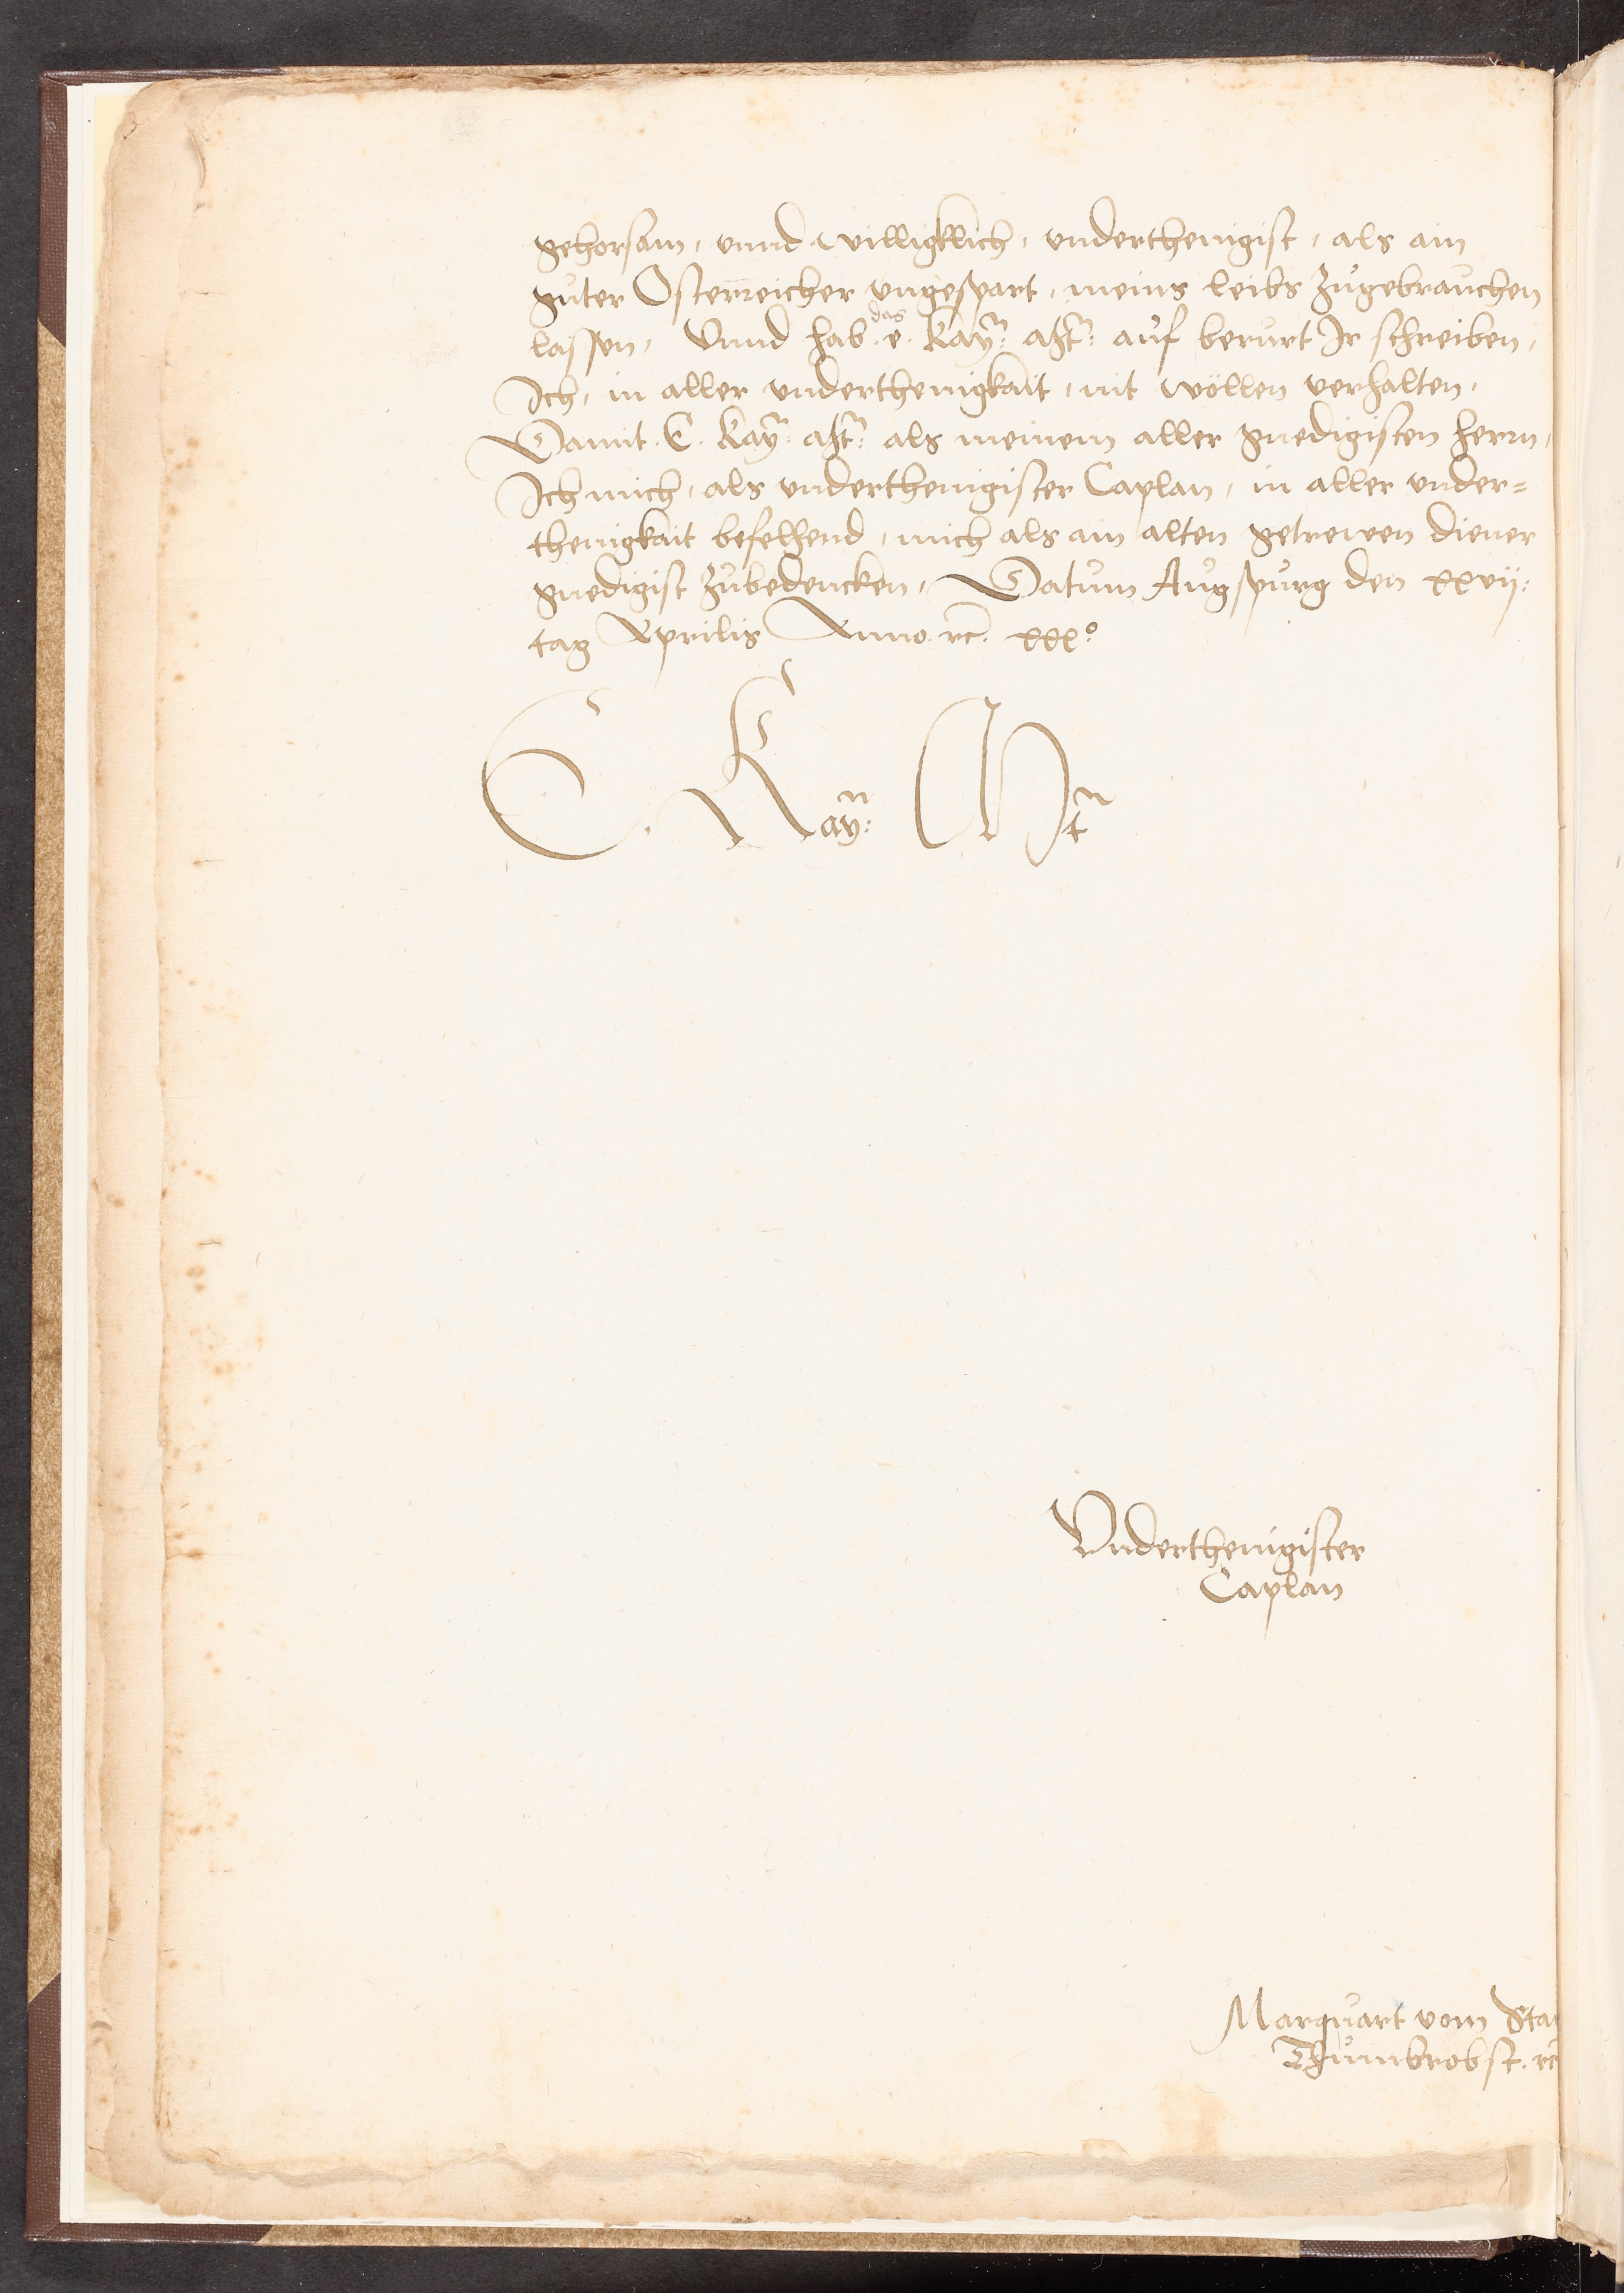 gehorsam, vnnd willigklich, vnderthenigist, als ain
guter Osterreicher vngespart, meins leibs zugebrauchen
lassen, Vnnd hab das e. Kay: Mt: auf berurt Ir schreiben,
Ich, in aller vnderthenigkait, nit wöllen verhalten,
Damit E. Kay: Mt: als meinem aller gnedigisten herrn,
Ich mich, als vnderthenigister Caplan, in aller vnder=
thenigkait befelhend, mich als ain alten getrewen diener
gnedigist zubedencken, Datum Augspurg den xxvij:
tag Aprilis Anno rc. xxx°
E. Kay: Mt
Vnderthenigister
Caplan
Marquart vom Sta
Thumbrobst. rc